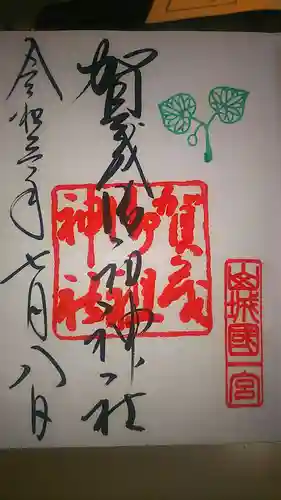 山城國一宮
賀茂御祖神社
賀茂御祖神社
令和三年七月八日